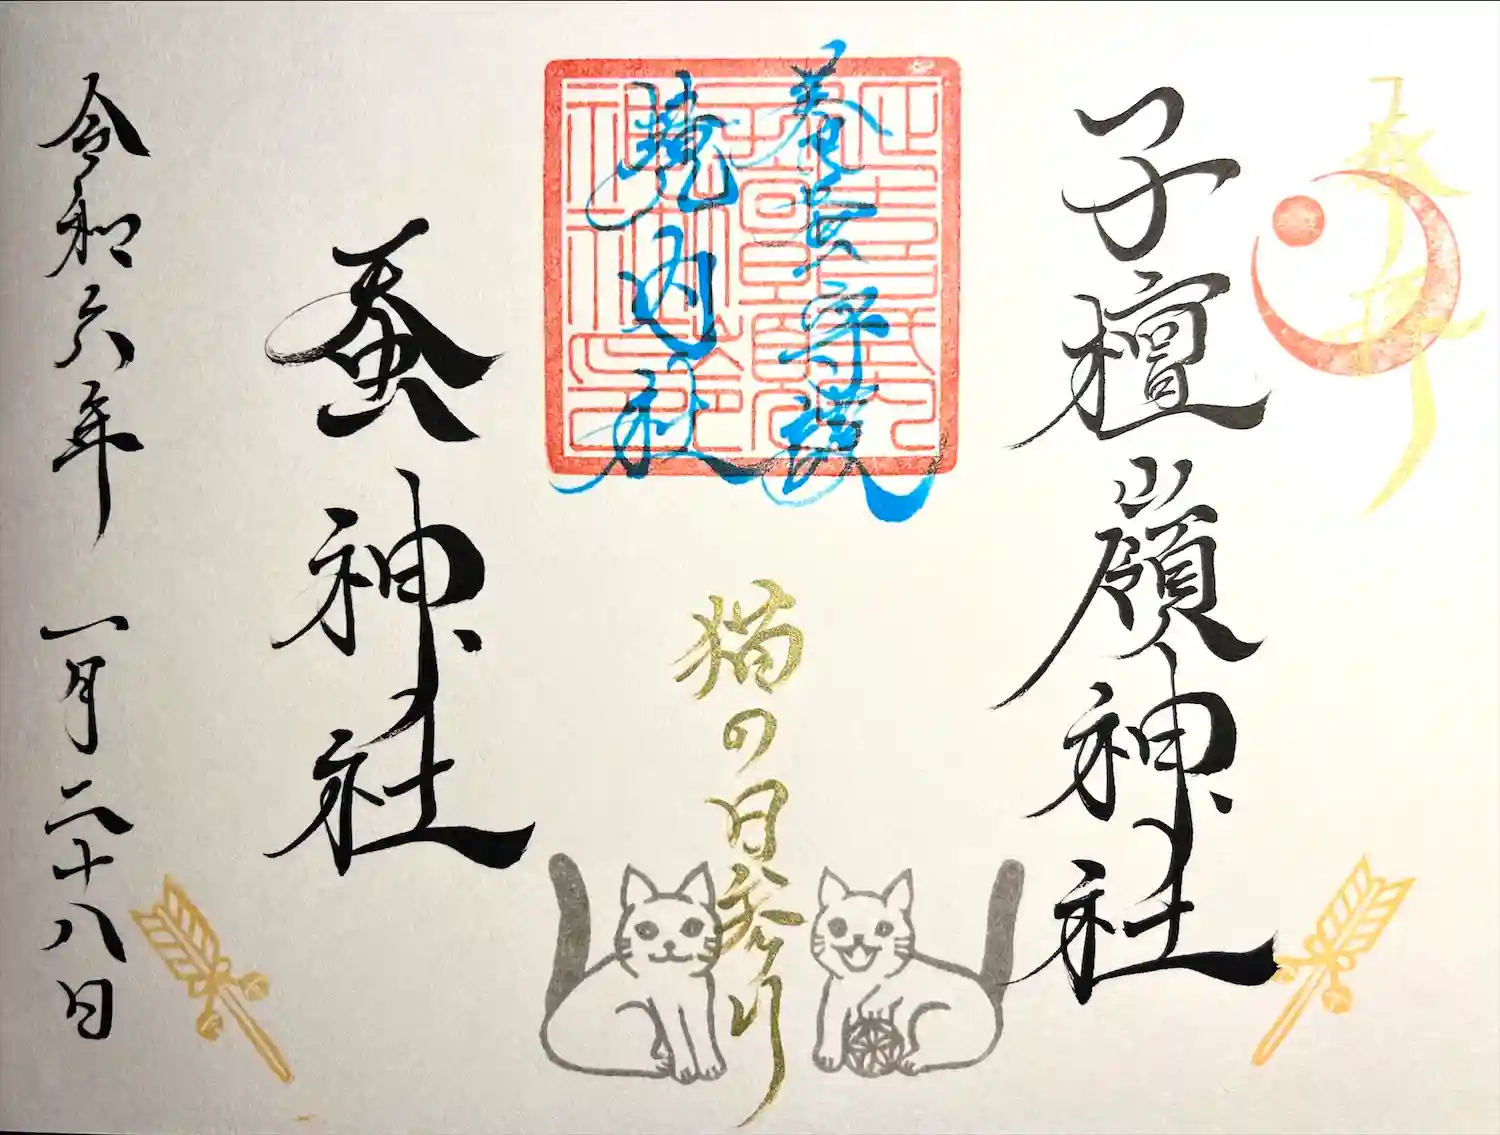 奉拝
子檀嶺神社
養蚕守護
境内社
猫の日参り
蚕神社
令和六年 一月二十八日